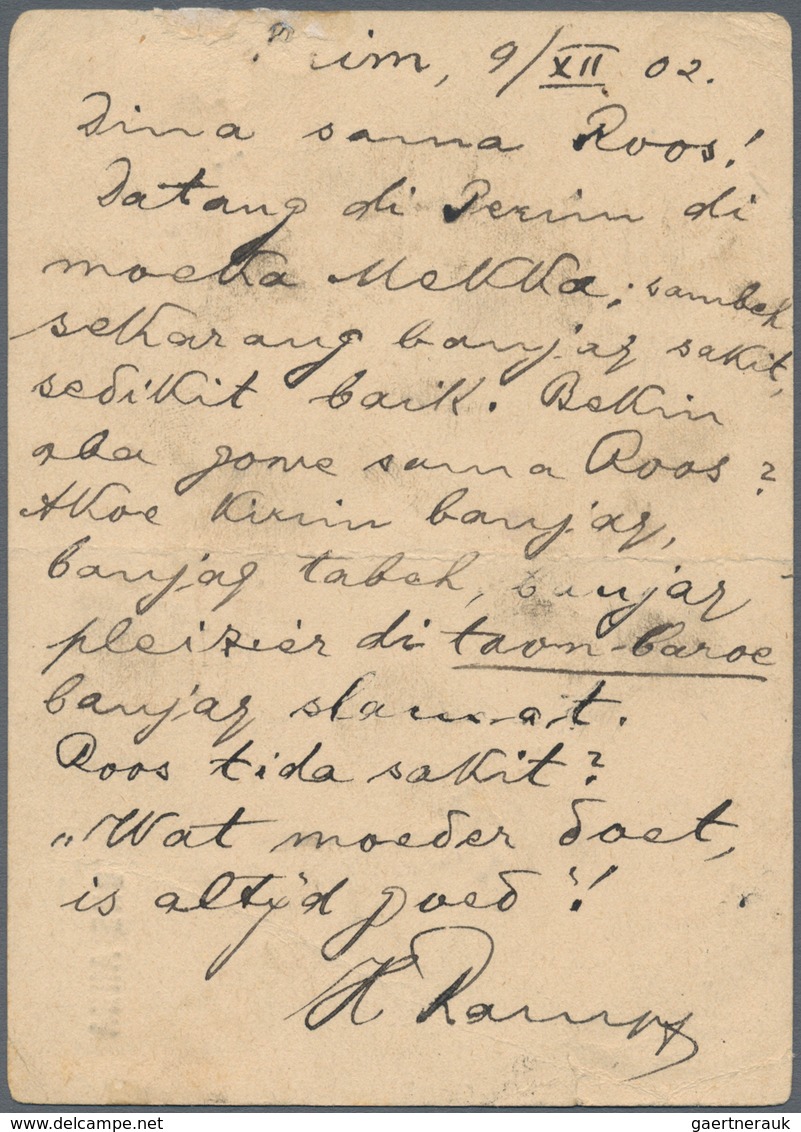 im, 9/XII 02.
Dina sama Roos!
Datang di Perim di
moeka Mekka; sambeh
sekarang banjaq sakit,
sedikit baik. Bekin
aba gowe sama Roos?
Akoe kirim banjaq,
banjaq tabeh, banjaq
pleizier di taon-baroe
banjaq slamat.
Roos tida sakit?
„Wat moeder doet,
is altijd goed"!
H
gaertnerauk